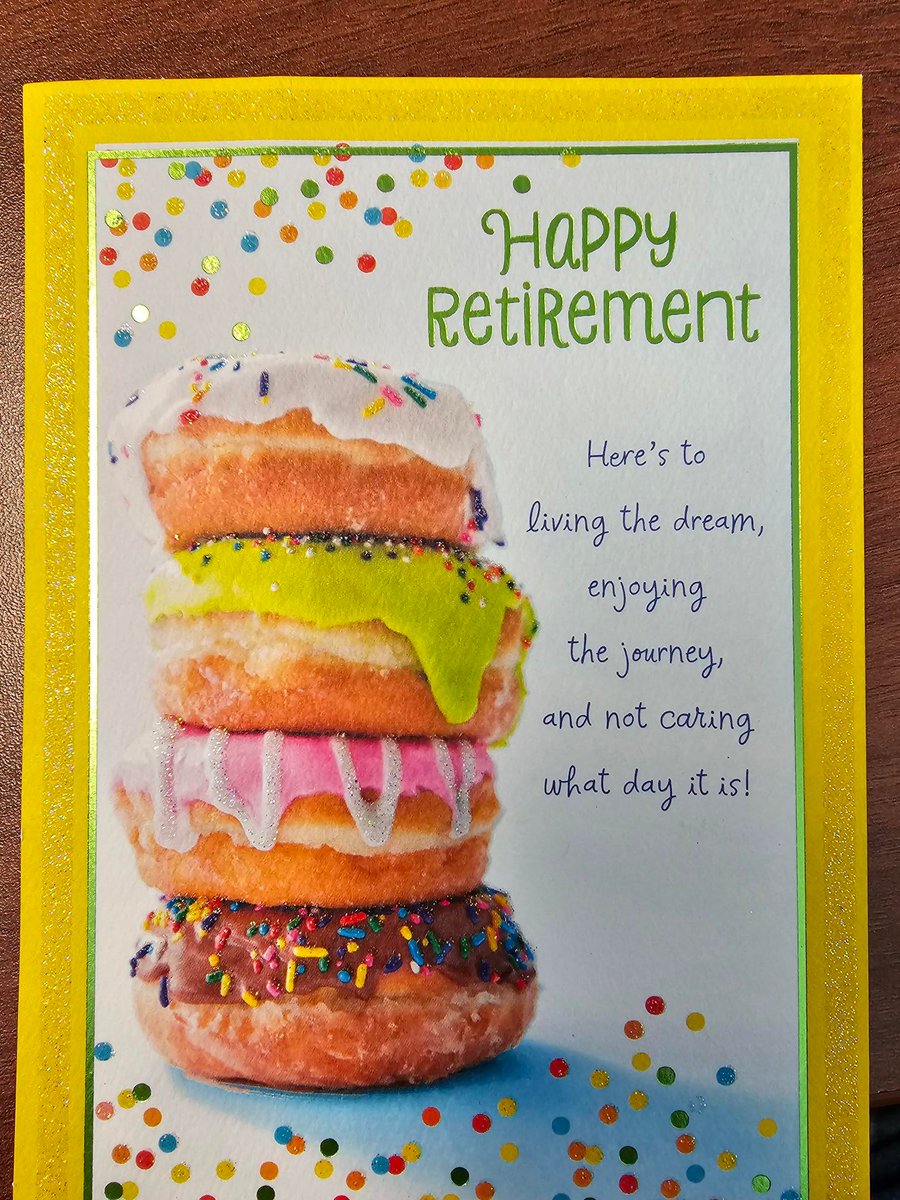 Happy
Retirement
Here's to
living the dream,
enjoying
the journey,
and not caring
what day it is!